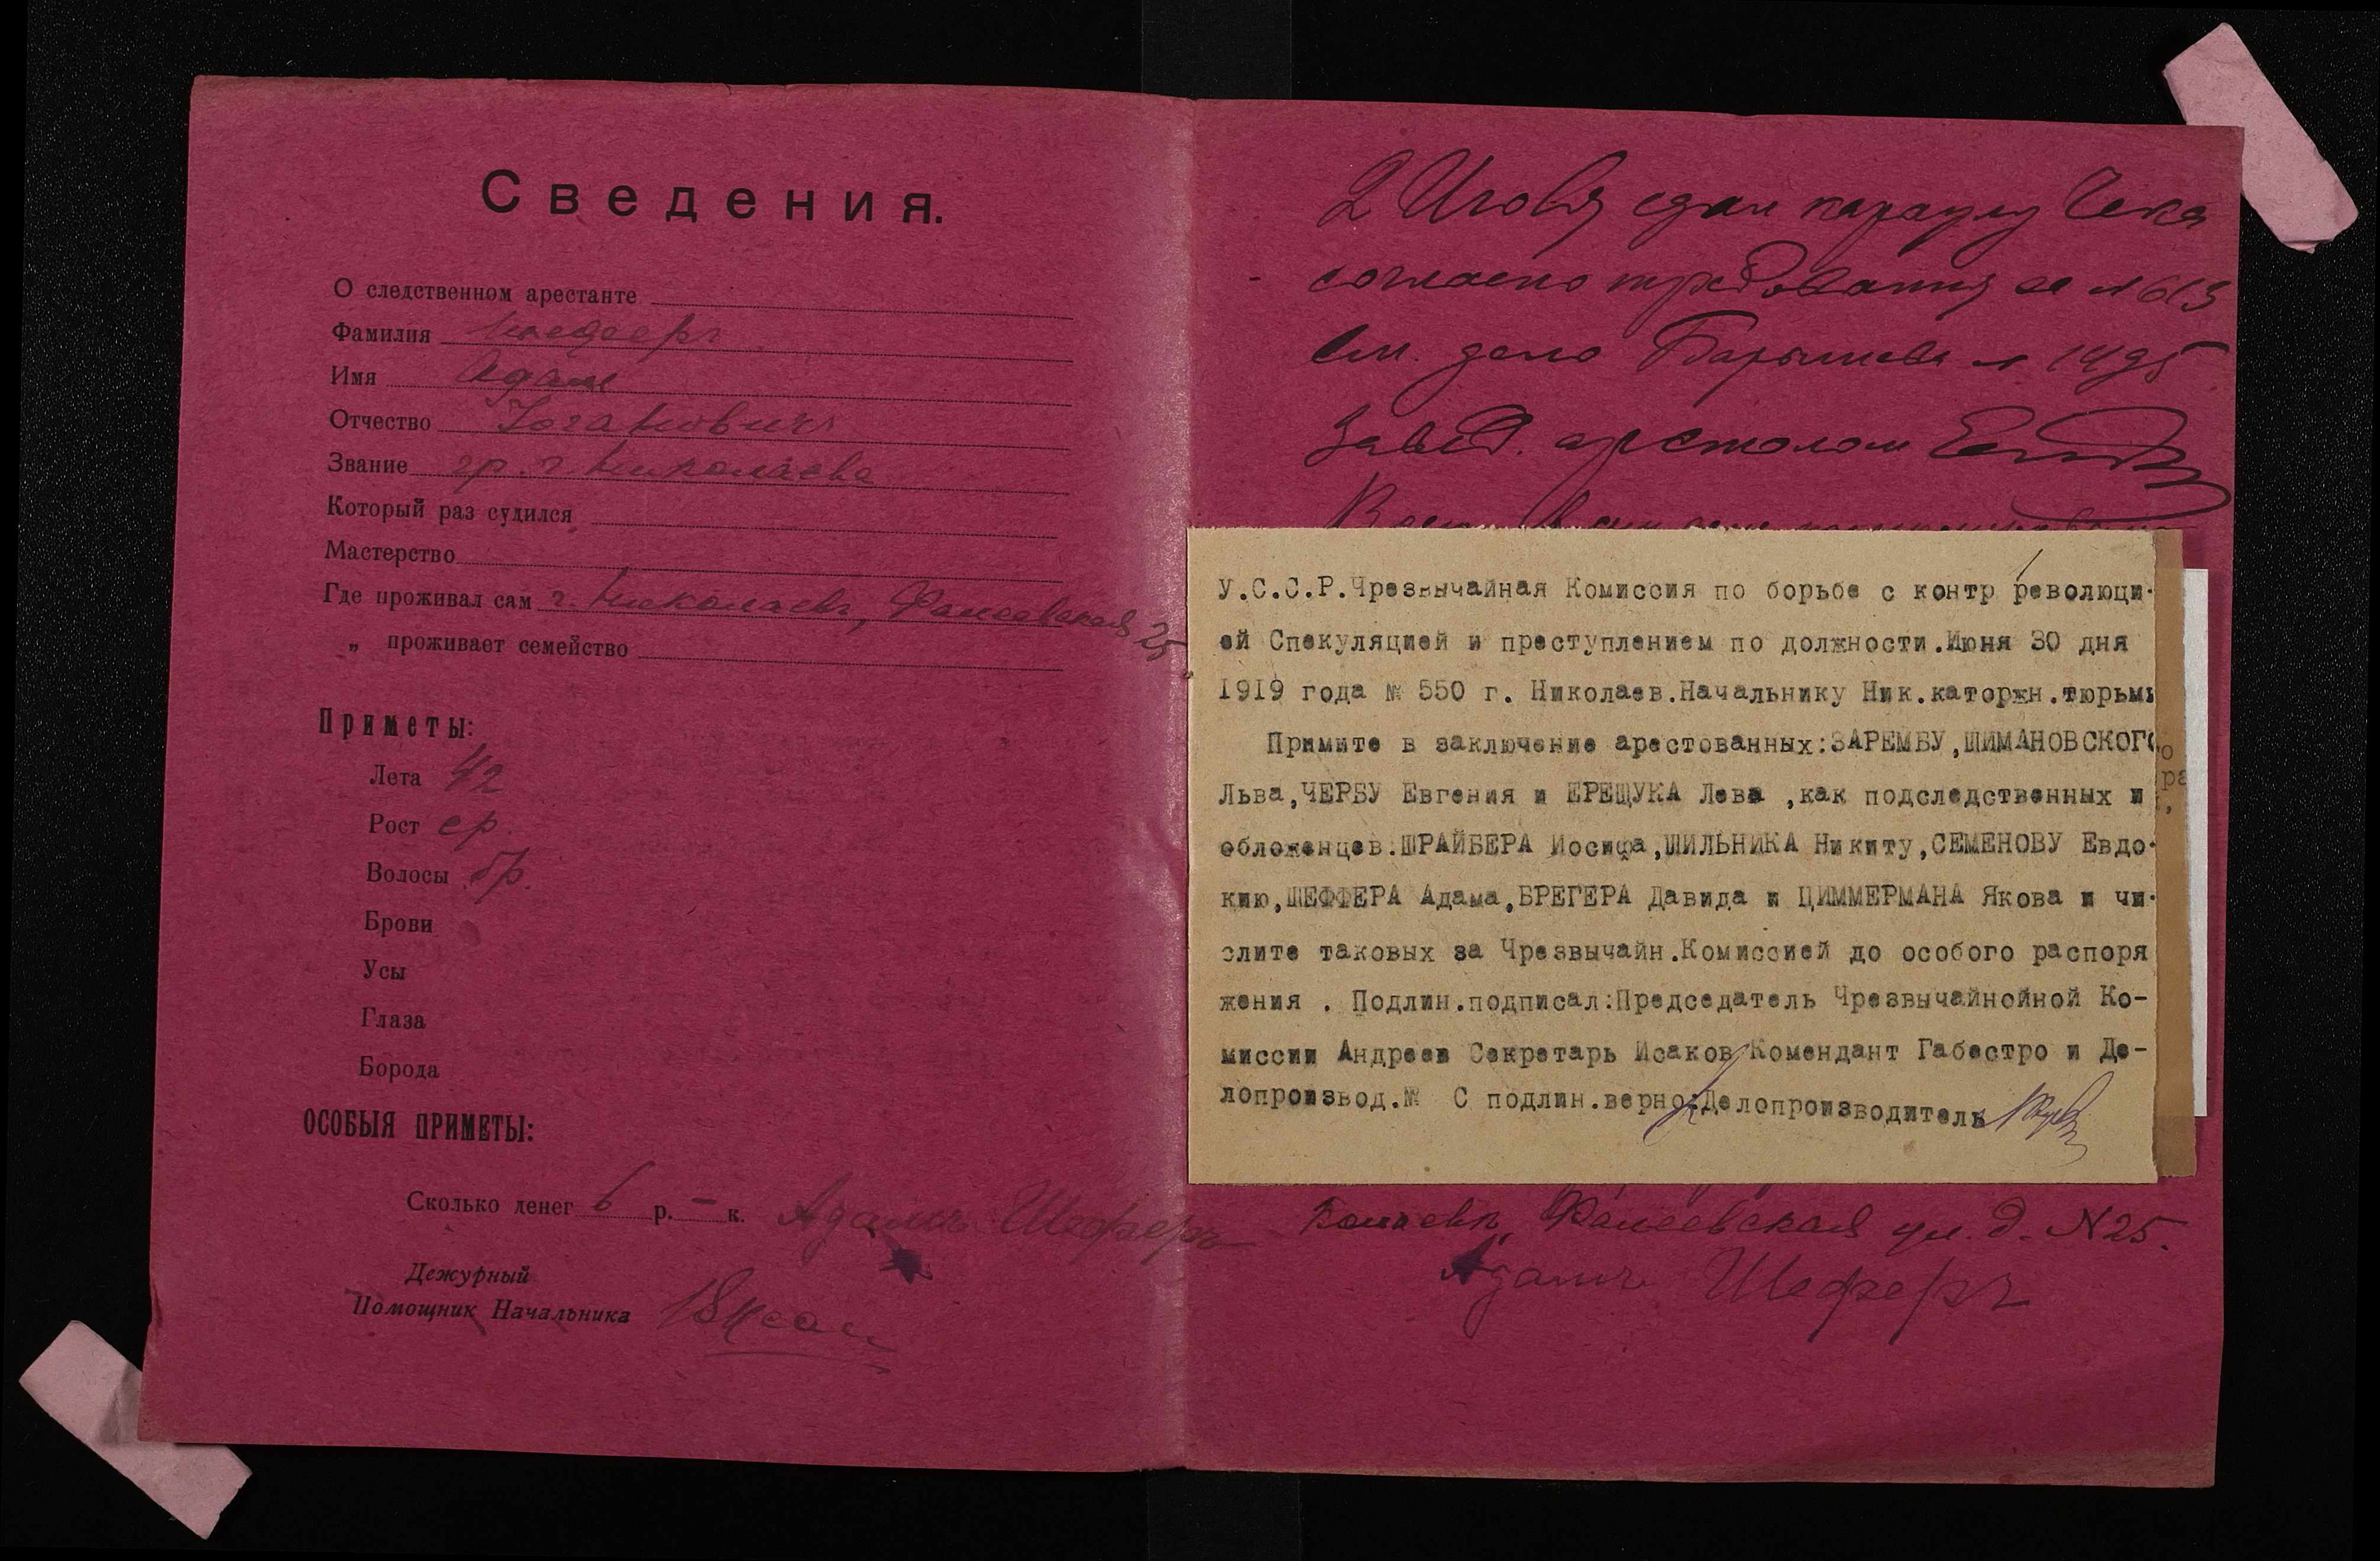 Сведения.
О следственном арестанте
Фамилия Шефферъ
Имя Адам
Отчество Иоганновичъ
Звание гр. г. Николаева
Который раз судился
Мастерство
Где проживал сам г. Николаевъ, Фалеевская 25
„ проживает семейство
Приметы:
Лета 42
Рост ср.
Волосы бр.
Брови
Усы
Глаза
Борода
ОСОБЫЯ ПРИМЕТЫ:
Сколько денег 6 р. – к. Адамъ Шеферъ
Дежурный
Помощник Начальника
2 Июля сдан караулу Чека
согласно требования ее № 613
См. дело Барышева № 1495
Завед. арстолом
У.С.С.Р.Чрезвычайная Комиссия по борьбе с контр революци-
ей Спекуляцией и преступлением по должности.Июня 30 дня
1919 года № 550 г. Николаев.Начальнику Ник.каторжн.тюрьмы
Примите в заключение арестованных:ЗАРЕМБУ,ШИМАНОВСКОГО
Льва,ЧЕРБУ Евгения и ЕРЕЩУКА Лева ,как подследственных и
обложенцев.ШРАЙБЕРА Иосифа,ШИЛЬНИКА Никиту,СЕМЕНОВУ Евдо-
кию,ШЕФФЕРА Адама,БРЕГЕРА Давида и ЦИММЕРМАНА Якова и чи-
слите таковых за Чрезвычайн.Комиссией до особого распоря
жения . Подлин.подписал:Председатель Чрезвычайнойной Ко-
миссии Андреев Секретарь Исаков Комендант Габестро и Де-
лопроизвод.№ С подлин.верно:Делопроизводитель
Фалеевская ул. д. N 25.
Адамъ Шеферъ